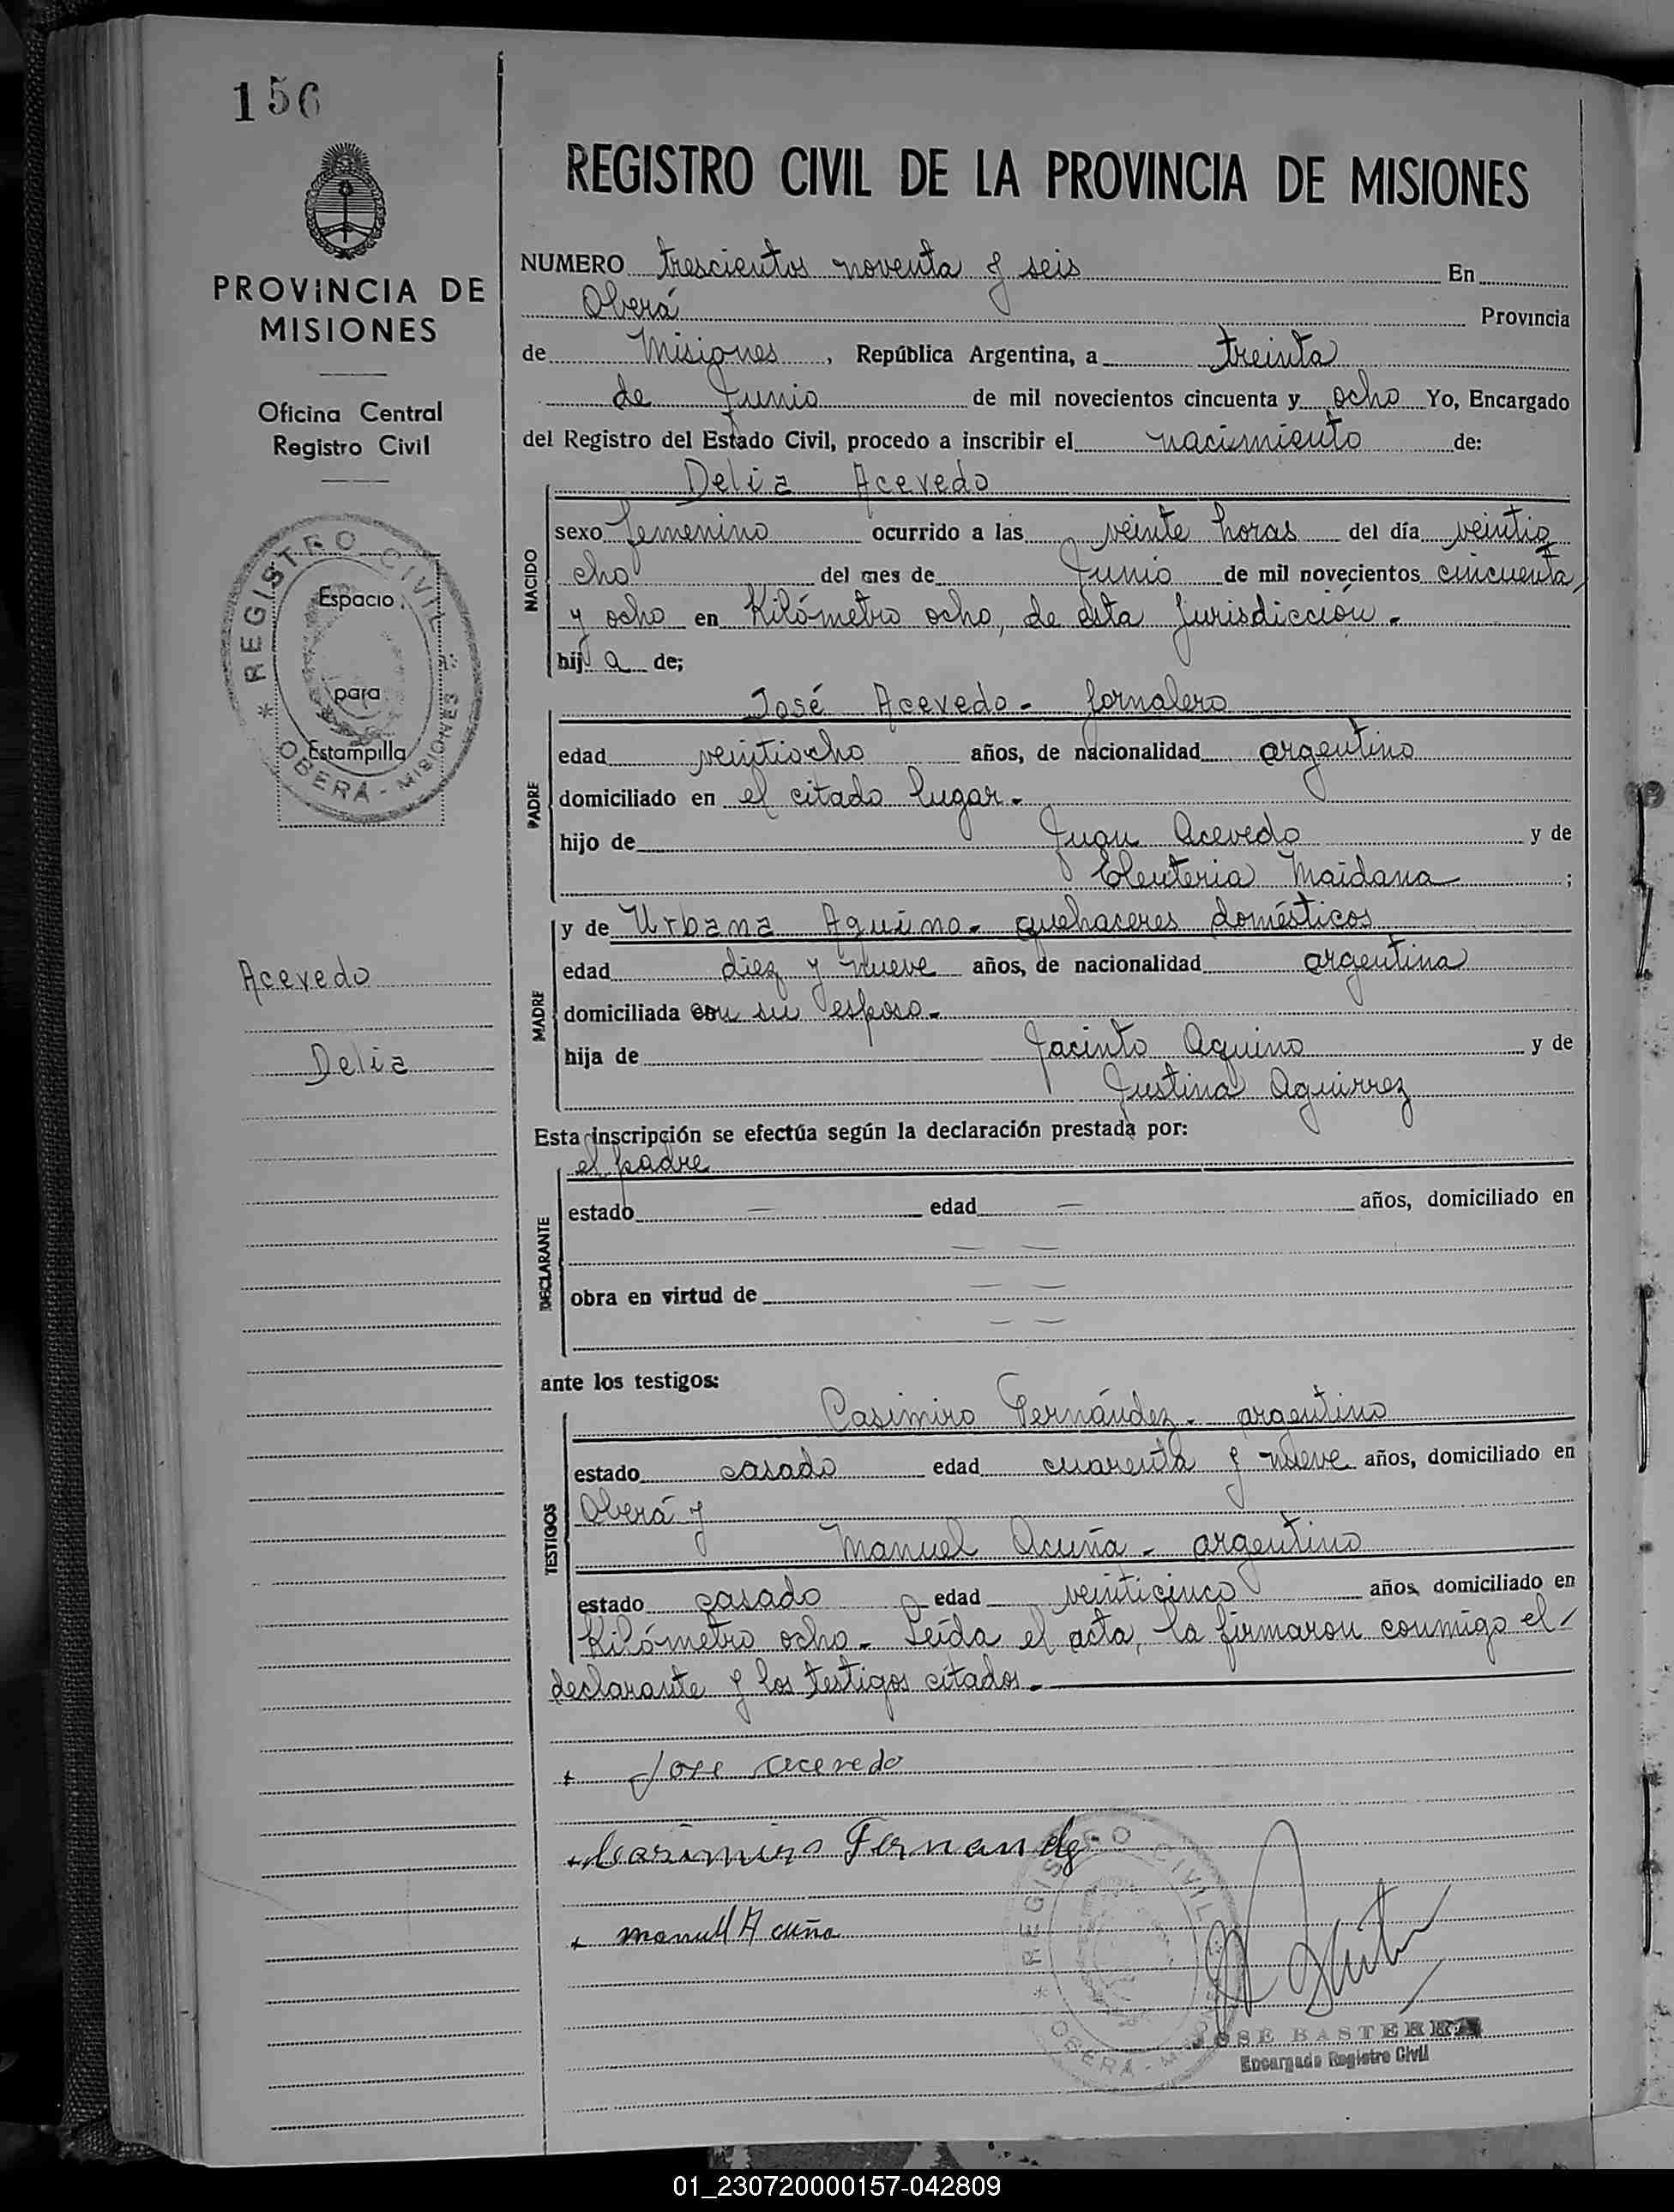 156
PROVINCIA DE
MISIONES
Oficina Central
Registro Civil
REGISTRO CIVIL
Espacio
para
Estampilla
OBERÁ - MISIONES
Acevedo
Delia
REGISTRO CIVIL DE LA PROVINCIA DE MISIONES
NUMERO trescientos noventa y seis En
Oberá Provincia
de Misiones, República Argentina, a treinta
de Junio de mil novecientos cincuenta y ocho Yo, Encargado
del Registro del Estado Civil, procedo a inscribir el nacimiento de:
Delia Acevedo
NACIDO
sexo femenino ocurrido a las veinte horas del día veintio
cho del mes de Junio de mil novecientos cincuenta
y ocho en Kilómetro ocho, de ésta Jurisdicción.-
hija de;
José Acevedo - Jornalero
PADRE
edad veintiocho años, de nacionalidad argentino
domiciliado en el citado lugar.-
hijo de Juan Acevedo y de
Eleuteria Maidana ;
y de Urbana Aquino - quehaceres domésticos
MADRE
edad diez y nueve años, de nacionalidad argentina
domiciliada con su esposo.-
hija de Jacinto Aquino y de
Justina Aguirrez
Esta inscripción se efectúa según la declaración prestada por:
el padre
DECLARANTE
estado — edad — años, domiciliado en
— —
obra en virtud de — —
— —
ante los testigos:
Casimiro Fernández - argentino
TESTIGOS
estado casado edad cuarenta y nueve años, domiciliado en
Oberá y
Manuel Acuña - argentino
estado casado edad veinticinco años, domiciliado en
Kilómetro ocho.- Leída el acta, la firmaron conmigo el
declarante y los testigos citados.-
+ Jose acevedo
+ Casimiro Fernandez
+ manuel Acuña
REGISTRO CIVIL
OBERÁ - MISIONES
JOSÉ BASTERRA
Encargado Registro Civil
01_230720000157-042809